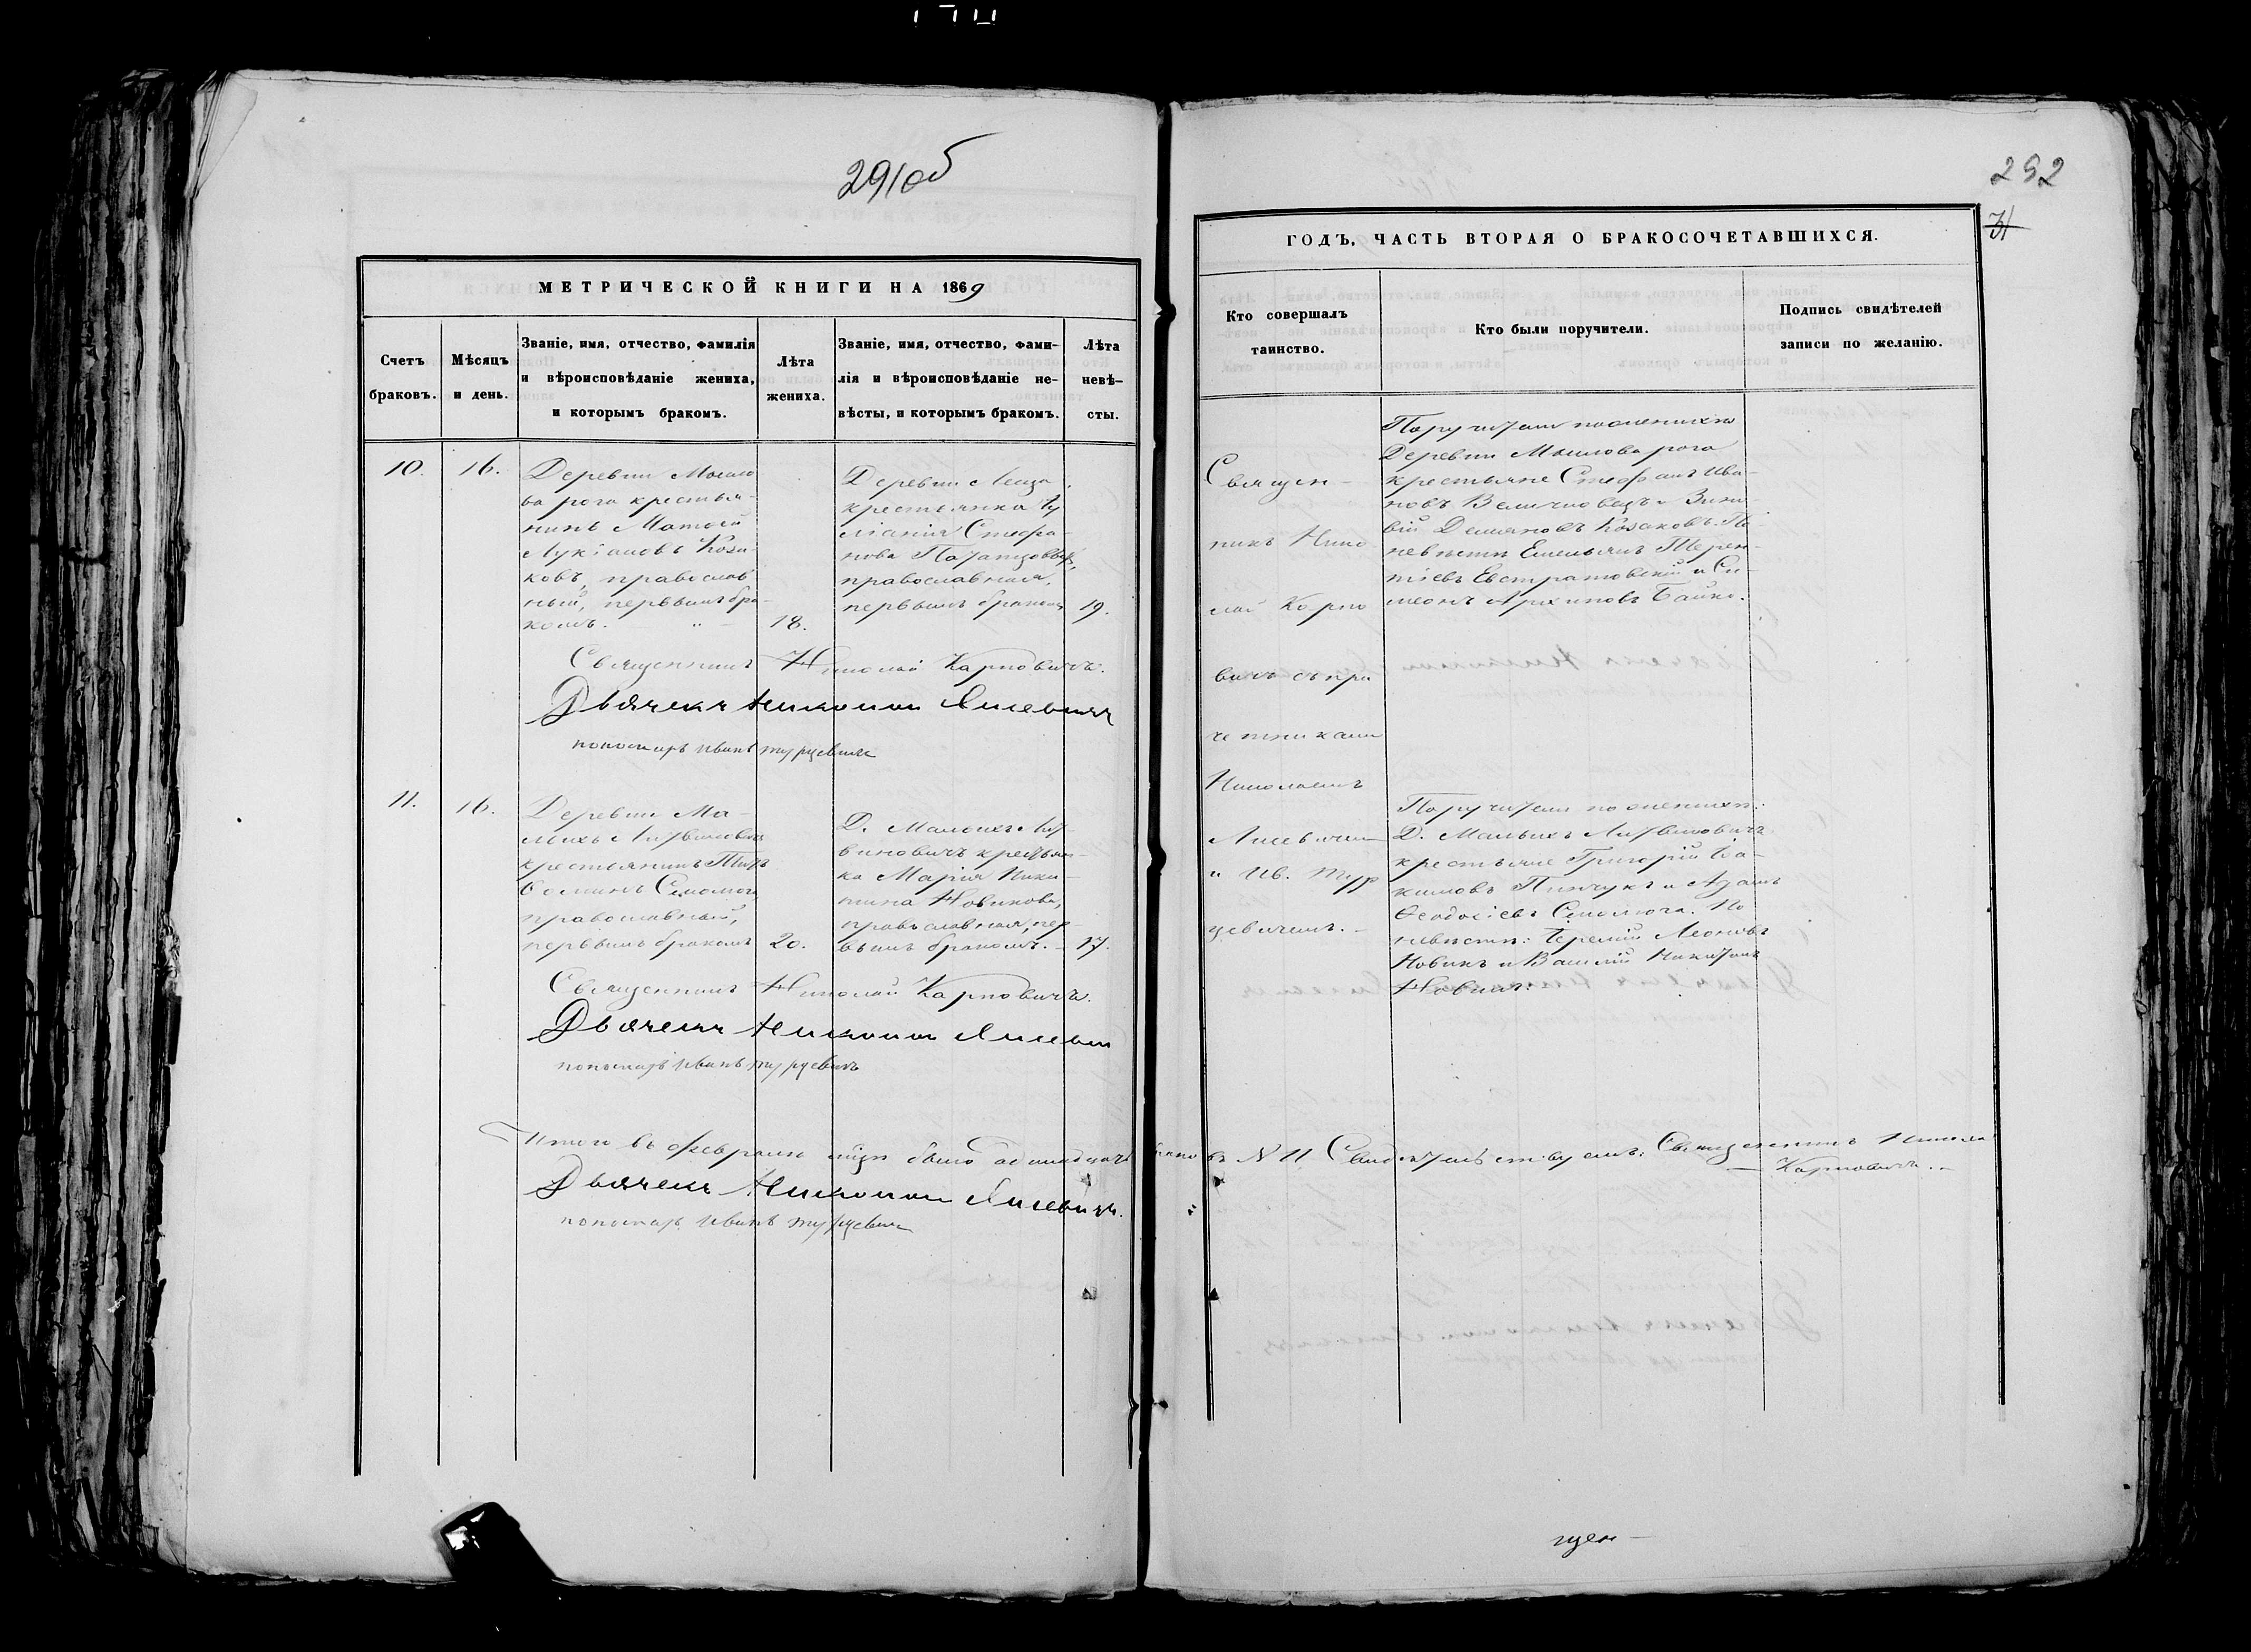 291об
МЕТРИЧЕСКОЙ КНИГИ НА 1869
Счетъ браковъ.
Мѣсяцъ и день.
Званіе, имя, отчество, фамилія
и вѣроисповѣданіе жениха,
и которымъ бракомъ.
Лѣта
жениха.
Званіе, имя, отчество, фами-
лія и вѣроисповѣданіе не-
вѣсты, и которымъ бракомъ.
Лѣта
невѣ-
сты.
10.
16.
Деревни
ва рога крестья-
нинъ Матѳей
Лукіановъ Коза-
ковъ, православ
ный, первымъ бра-
комъ.
18.
Деревни
крестьянка Іу
ліанія Стефа-
нова
православная,
первымъ бракомъ
19.
Священникъ Николай Карповичъ.
Дьячекъ Николай Лисевичъ
пономарь Иванъ Турцевичъ
11.
16.
Деревни Ма-
лыхъ Литвиновичъ
крестьянинъ
православный,
первымъ бракомъ
20.
Д. Малыхъ Лит-
виновичъ крестьян-
ка Марія Ники-
тина Новикова,
православная, пер-
вымъ бракомъ.
17.
Священникъ Николай Карповичъ.
Дьячекъ Николай Лисевич
пономарь Иванъ Турцевичъ
Итого въ февралѣ было одинадцать браковъ N 11 Свидѣтельствуемъ: Священникъ Николай
Карповичъ.
Дьячекъ Николай Лисевичъ.
пономарь Иванъ Турцевич
292
31
ГОДЪ, ЧАСТЬ ВТОРАЯ О БРАКОСОЧЕТАВШИХСЯ.
Кто совершалъ
таинство.
Кто были поручители.
Подпись свидѣтелей
записи по желанію.
Священ-
никъ Нико
лай Карпо
вичъ съ при
четниками
Николаемъ
Лисевичемъ
и Ив. Тур
цевичемъ.
Поручители по женихѣ
Деревни рога
крестьяне Стефанъ Ива-
новъ Величковецъ и Зино-
вій Деміановъ Козаковъ. По
невѣстѣ Емельянъ Терен-
тіевъ Евстратовскій и Си-
меонъ Архиповъ Байко.
Поручители по женихѣ:
Д. Малыхъ Литвиновичъ
крестьяне Григорій Іоа-
кимовъ Пинчукъ и Адамъ
Ѳеодосіевъ По
невѣстѣ: Іеремій Леоновъ
Новикъ и Василій Никитинъ
Новикъ.
щен-